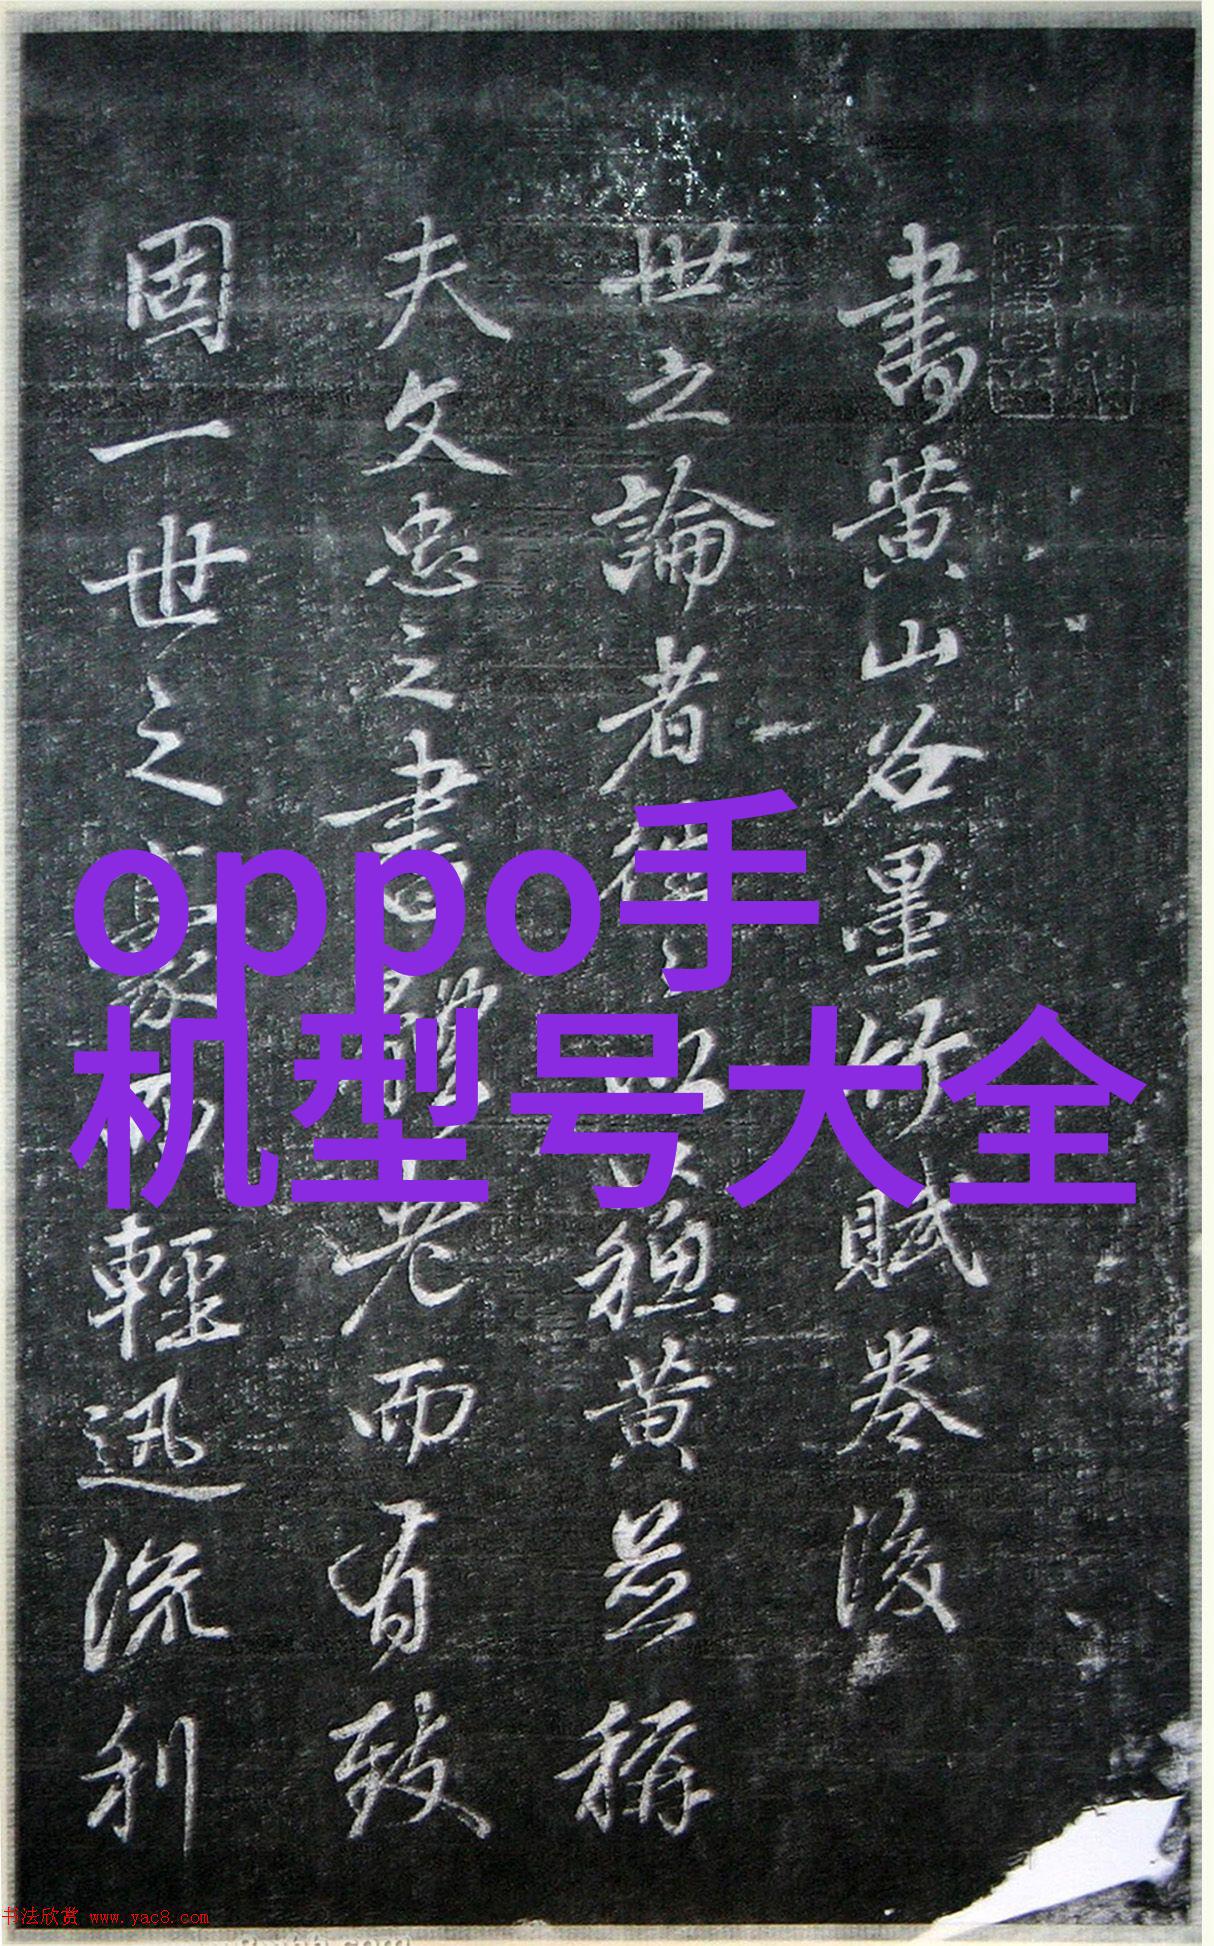 書黄山谷墨竹賦卷後
世之論者以黄並稱
夫文忠之書體老而有致
固一世之豪而輕迅流利
oppo手
机型号大全
书法欣赏 www.yac8.com